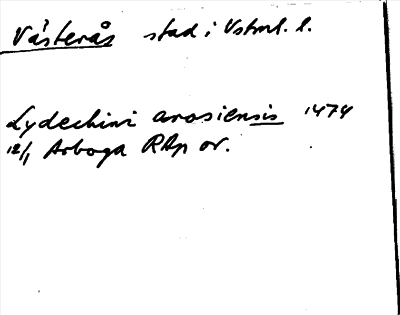 Västerås stad i Vstml. l.
Lydechini arosiensis 1474
12/1 Arboga RAp or.